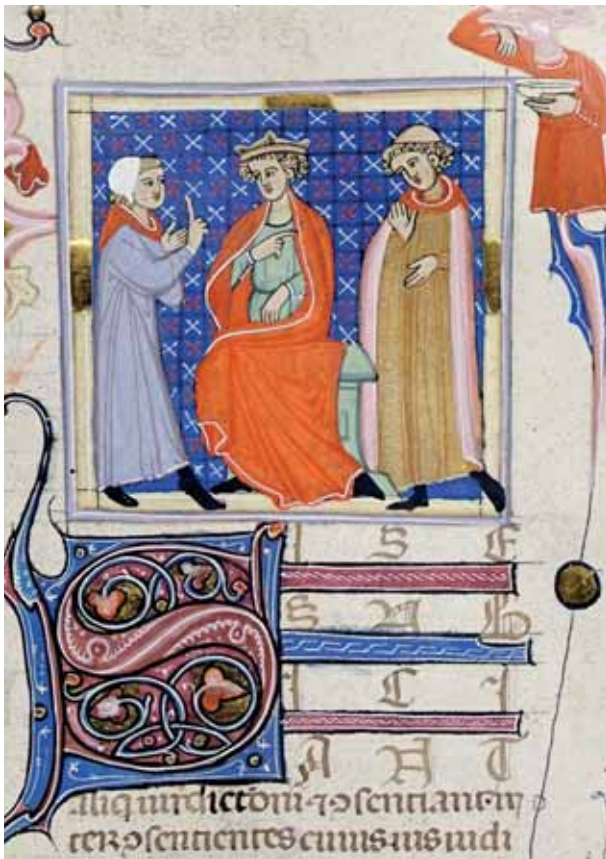 S I S E
S U B
I C I
A N T
aliqui iurdictoni ⁊ ɔsentiant in
ter ɔsentientes cuiusuis iudi